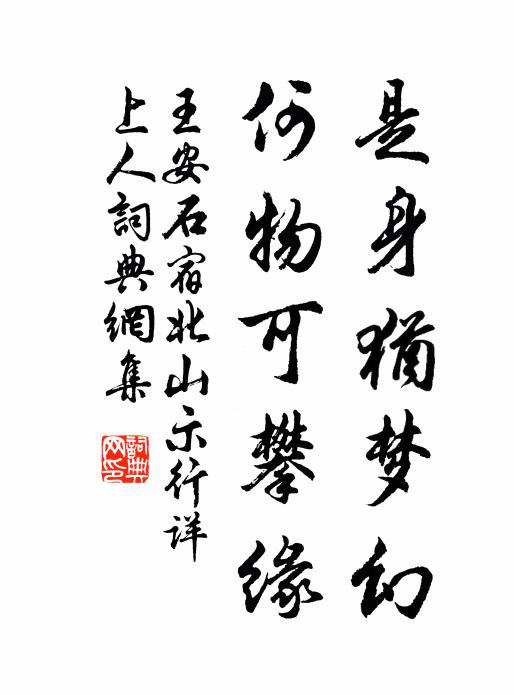 是身猶梦幻
何物可攀缘
王安石宿北山示行详
上人詞典網集
詞典网印